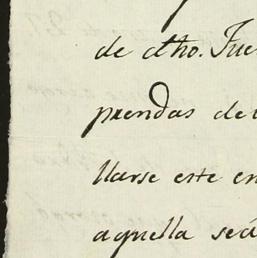 de dho. Jue
prendas de
llarse este en
aquella seá